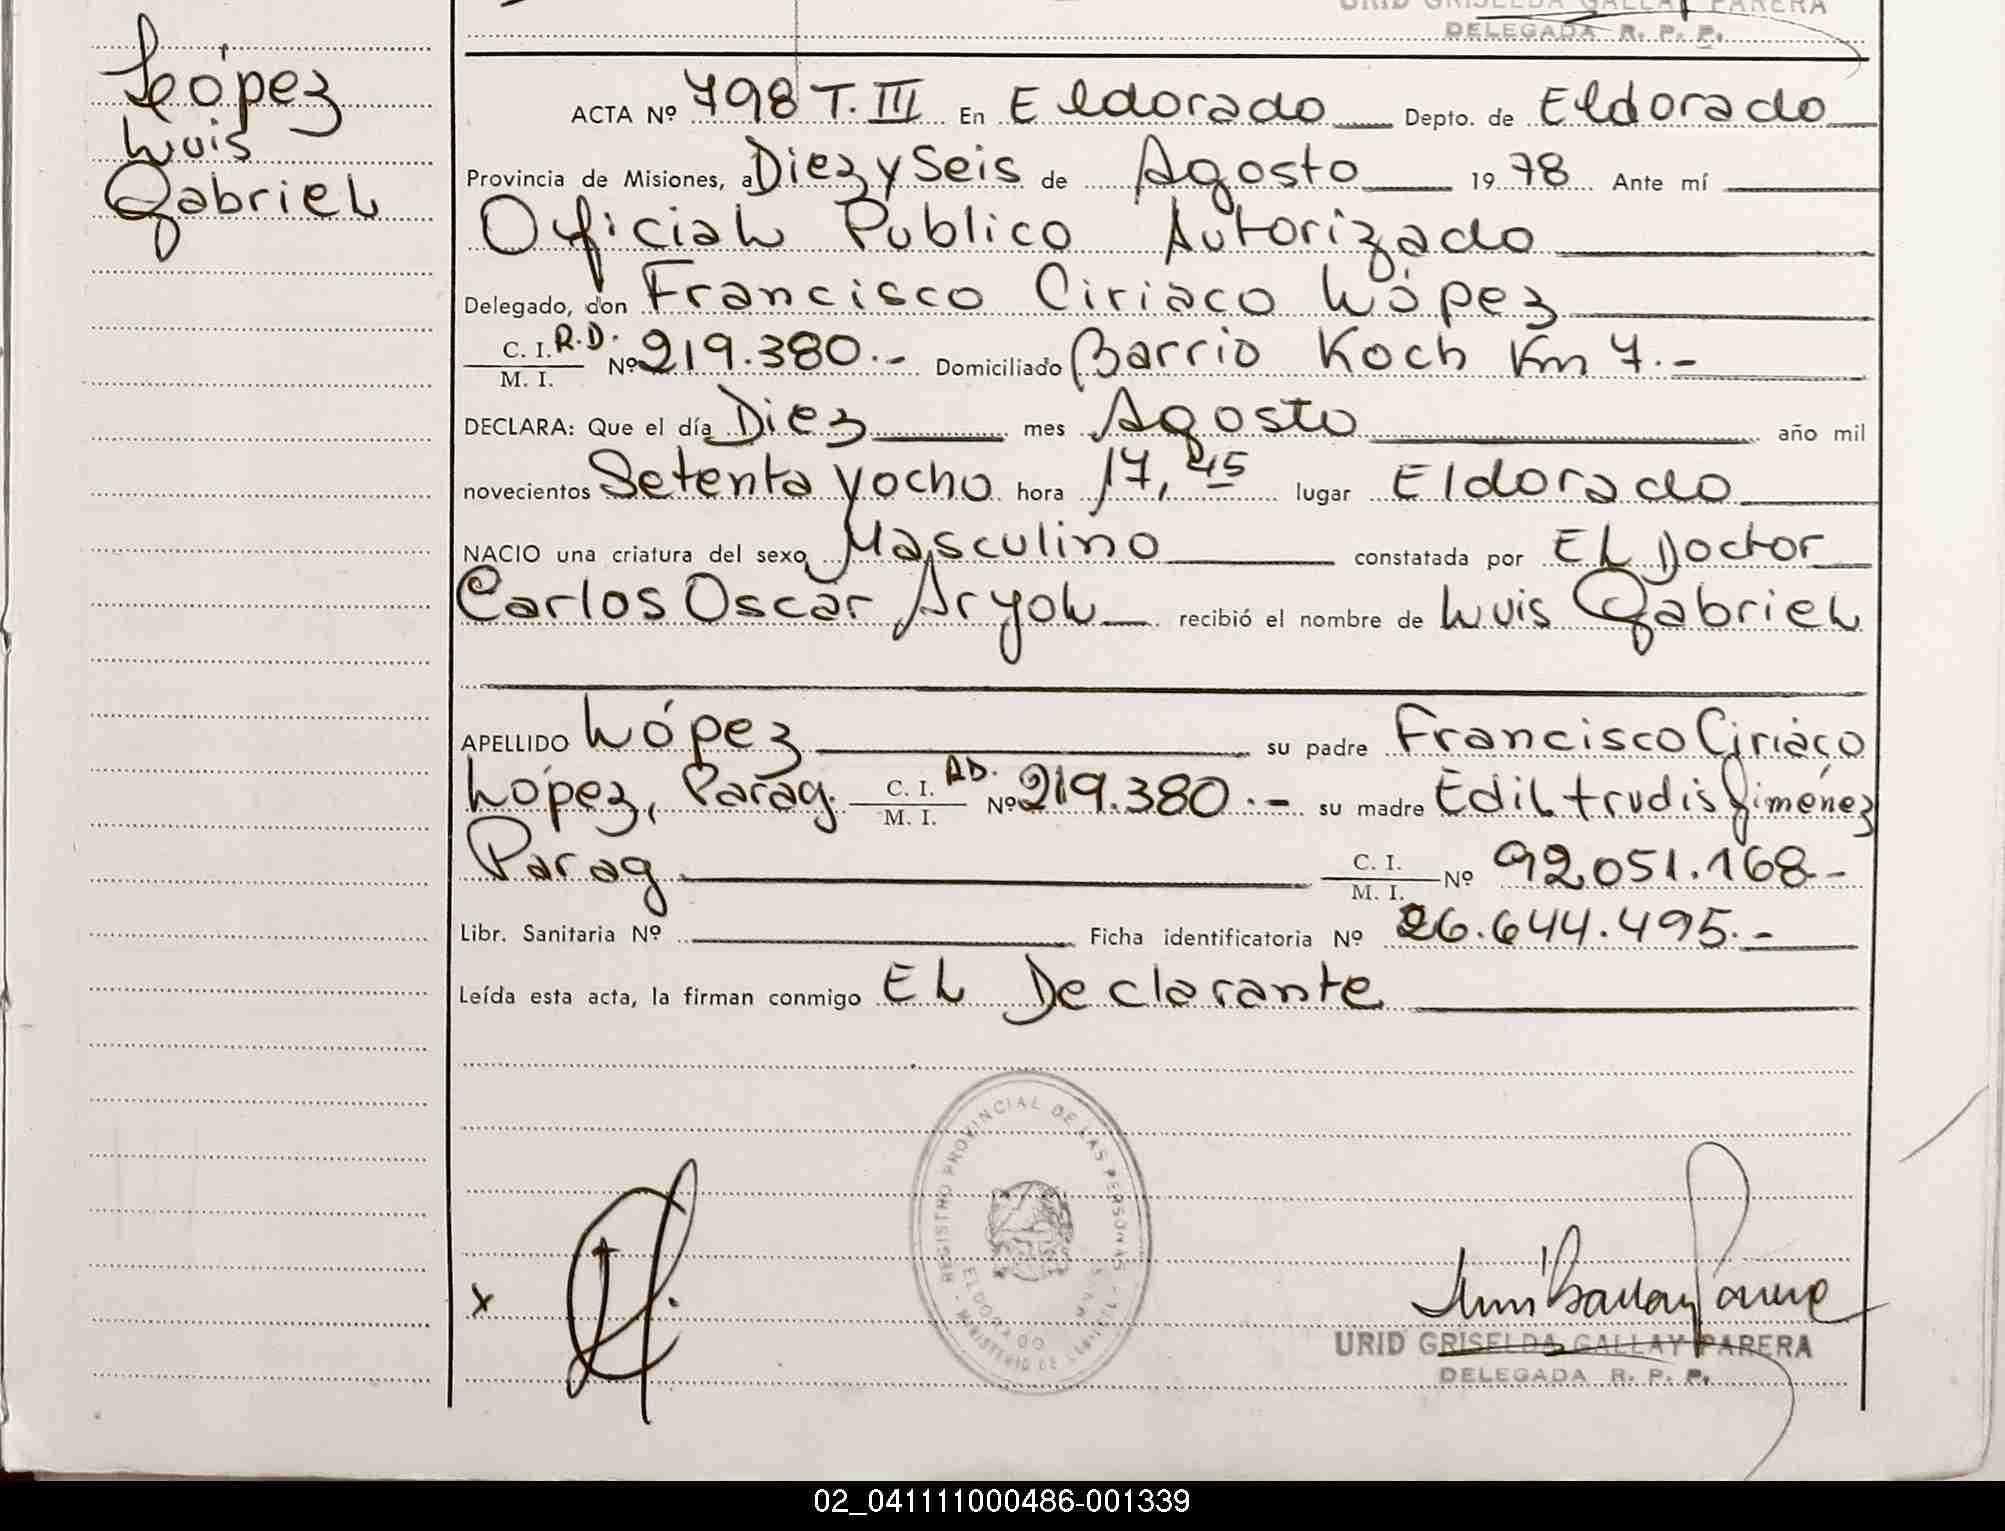 URID GRISELDA GALLAY PARERA
DELEGADA R. P. P.
López
Luis
Gabriel
ACTA Nº 798 T. III En Eldorado Depto. de Eldorado
Provincia de Misiones, a Diez y Seis de Agosto 19 78 Ante mí
Oficial Publico Autorizado
Delegado, don Francisco Ciriaco López
C. I. R.D. Nº 219.380.- Domiciliado Barrio Koch Km 7.-
M. I.
DECLARA: Que el día Diez mes Agosto año mil
novecientos Setenta y ocho hora 17,45 lugar Eldorado
NACIO una criatura del sexo Masculino constatada por El Doctor
Carlos Oscar Aryol recibió el nombre de Luis Gabriel
APELLIDO López su padre Francisco Ciriaco
López, Parag. C. I. RD. Nº 219.380.- su madre Ediltrudis Jiménez
M. I.
Parag C. I. Nº 92.051.168-
M. I.
Libr. Sanitaria Nº Ficha identificatoria Nº 26.644.495.-
Leída esta acta, la firman conmigo El Declarante
REGISTRO PROVINCIAL DE LAS PERSONAS
ELDORADO
x
URID GRISELDA GALLAY PARERA
DELEGADA R. P. P.
02_041111000486-001339